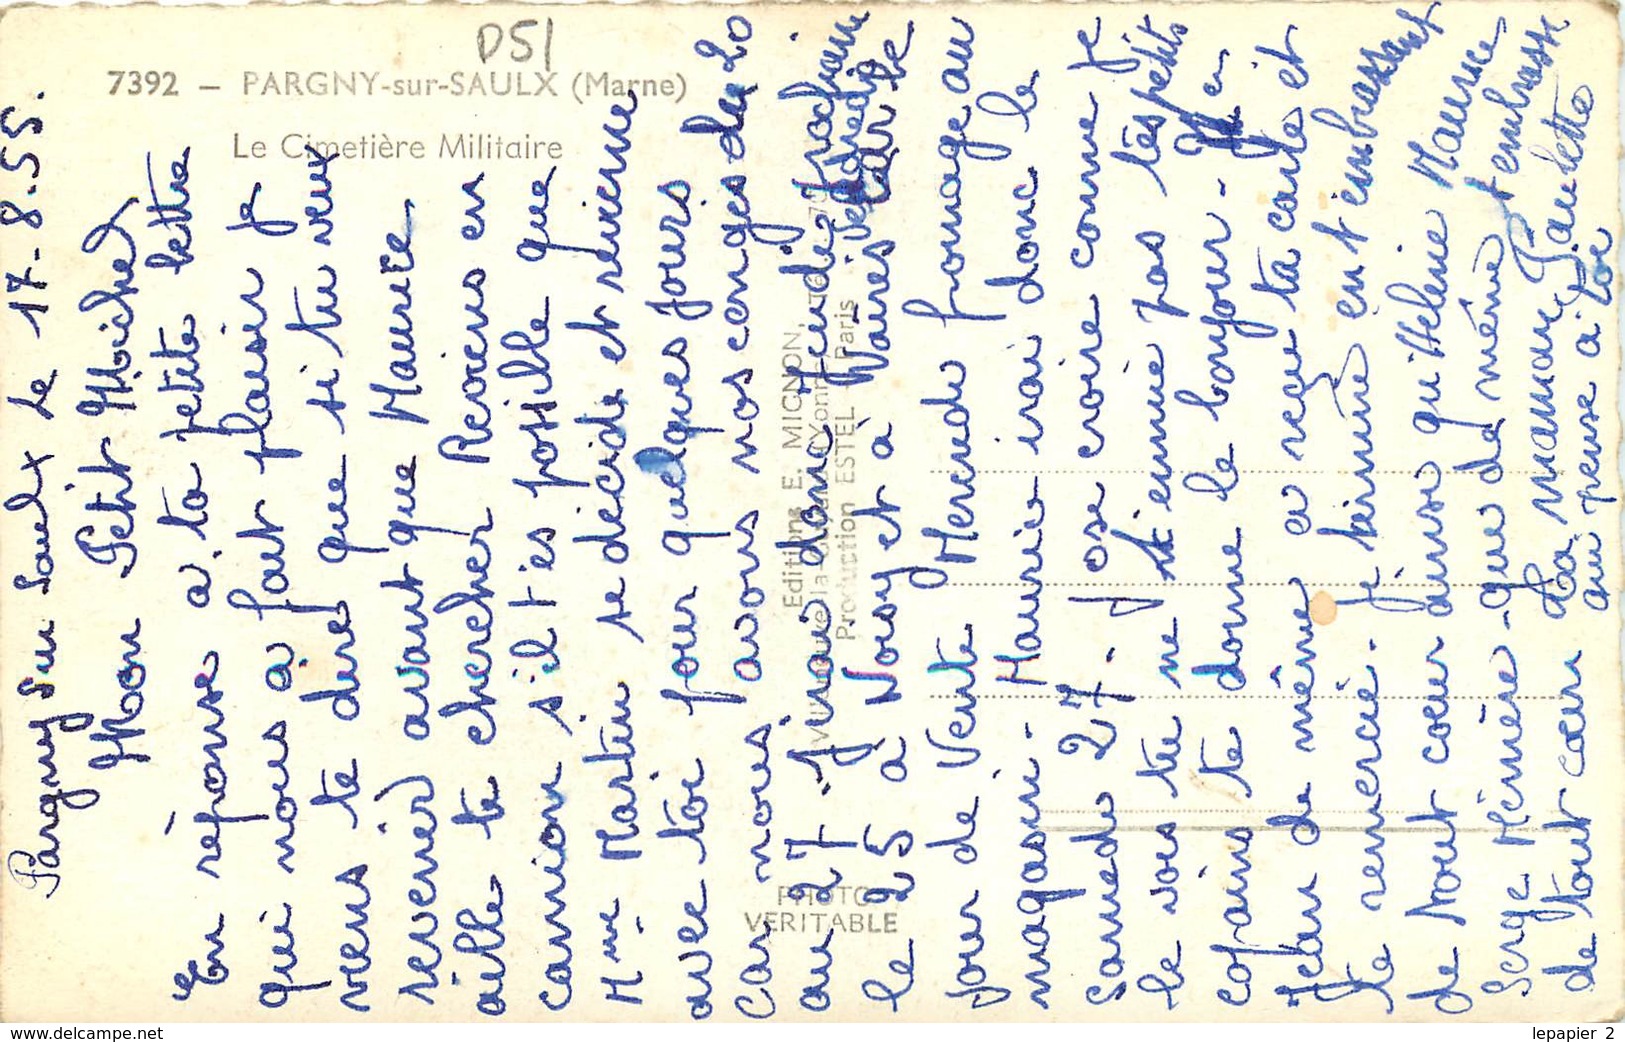 D51
7392 — PARGNY-sur-SAULX (Marne)
Le Cimetière Militaire
Editions E. MIGNON,
Production ESTEL Paris
PHOTO
VERITABLE
Pargny Sur Saulx le 17-8.55.
Mon Petit Michel
En réponse a ta petite lettre
qui nous a fait plaisir je
viens te dire que si tu veux
revenir avant que Maurice
aille te chercher Reviens en
camion s'il t'es possible que
Mme Martin se décide et revienne
avec toi pour quelques jours
car nous avons nos congés du 20
au 27 - J'irai donc Jeudi prochain
le 25 a Noisy et à Vaires vendredi car le
jour de Vente Mercredi fromage au
magasin - Maurice irai donc le
Samedi 27. J'ose croire comme je
le vois tu ne t'ennuie pas les petits
copains te donne le bonjour -
Jean de même a reçu ta carte et
te remercie. Je termine en t'embrassant
de tout cœur ainsi qu'Helene Maurice
Serge Mémère - que de même t'embrasse
de tout cœur La maman Paulette
qui pense a toi
lepapier_2